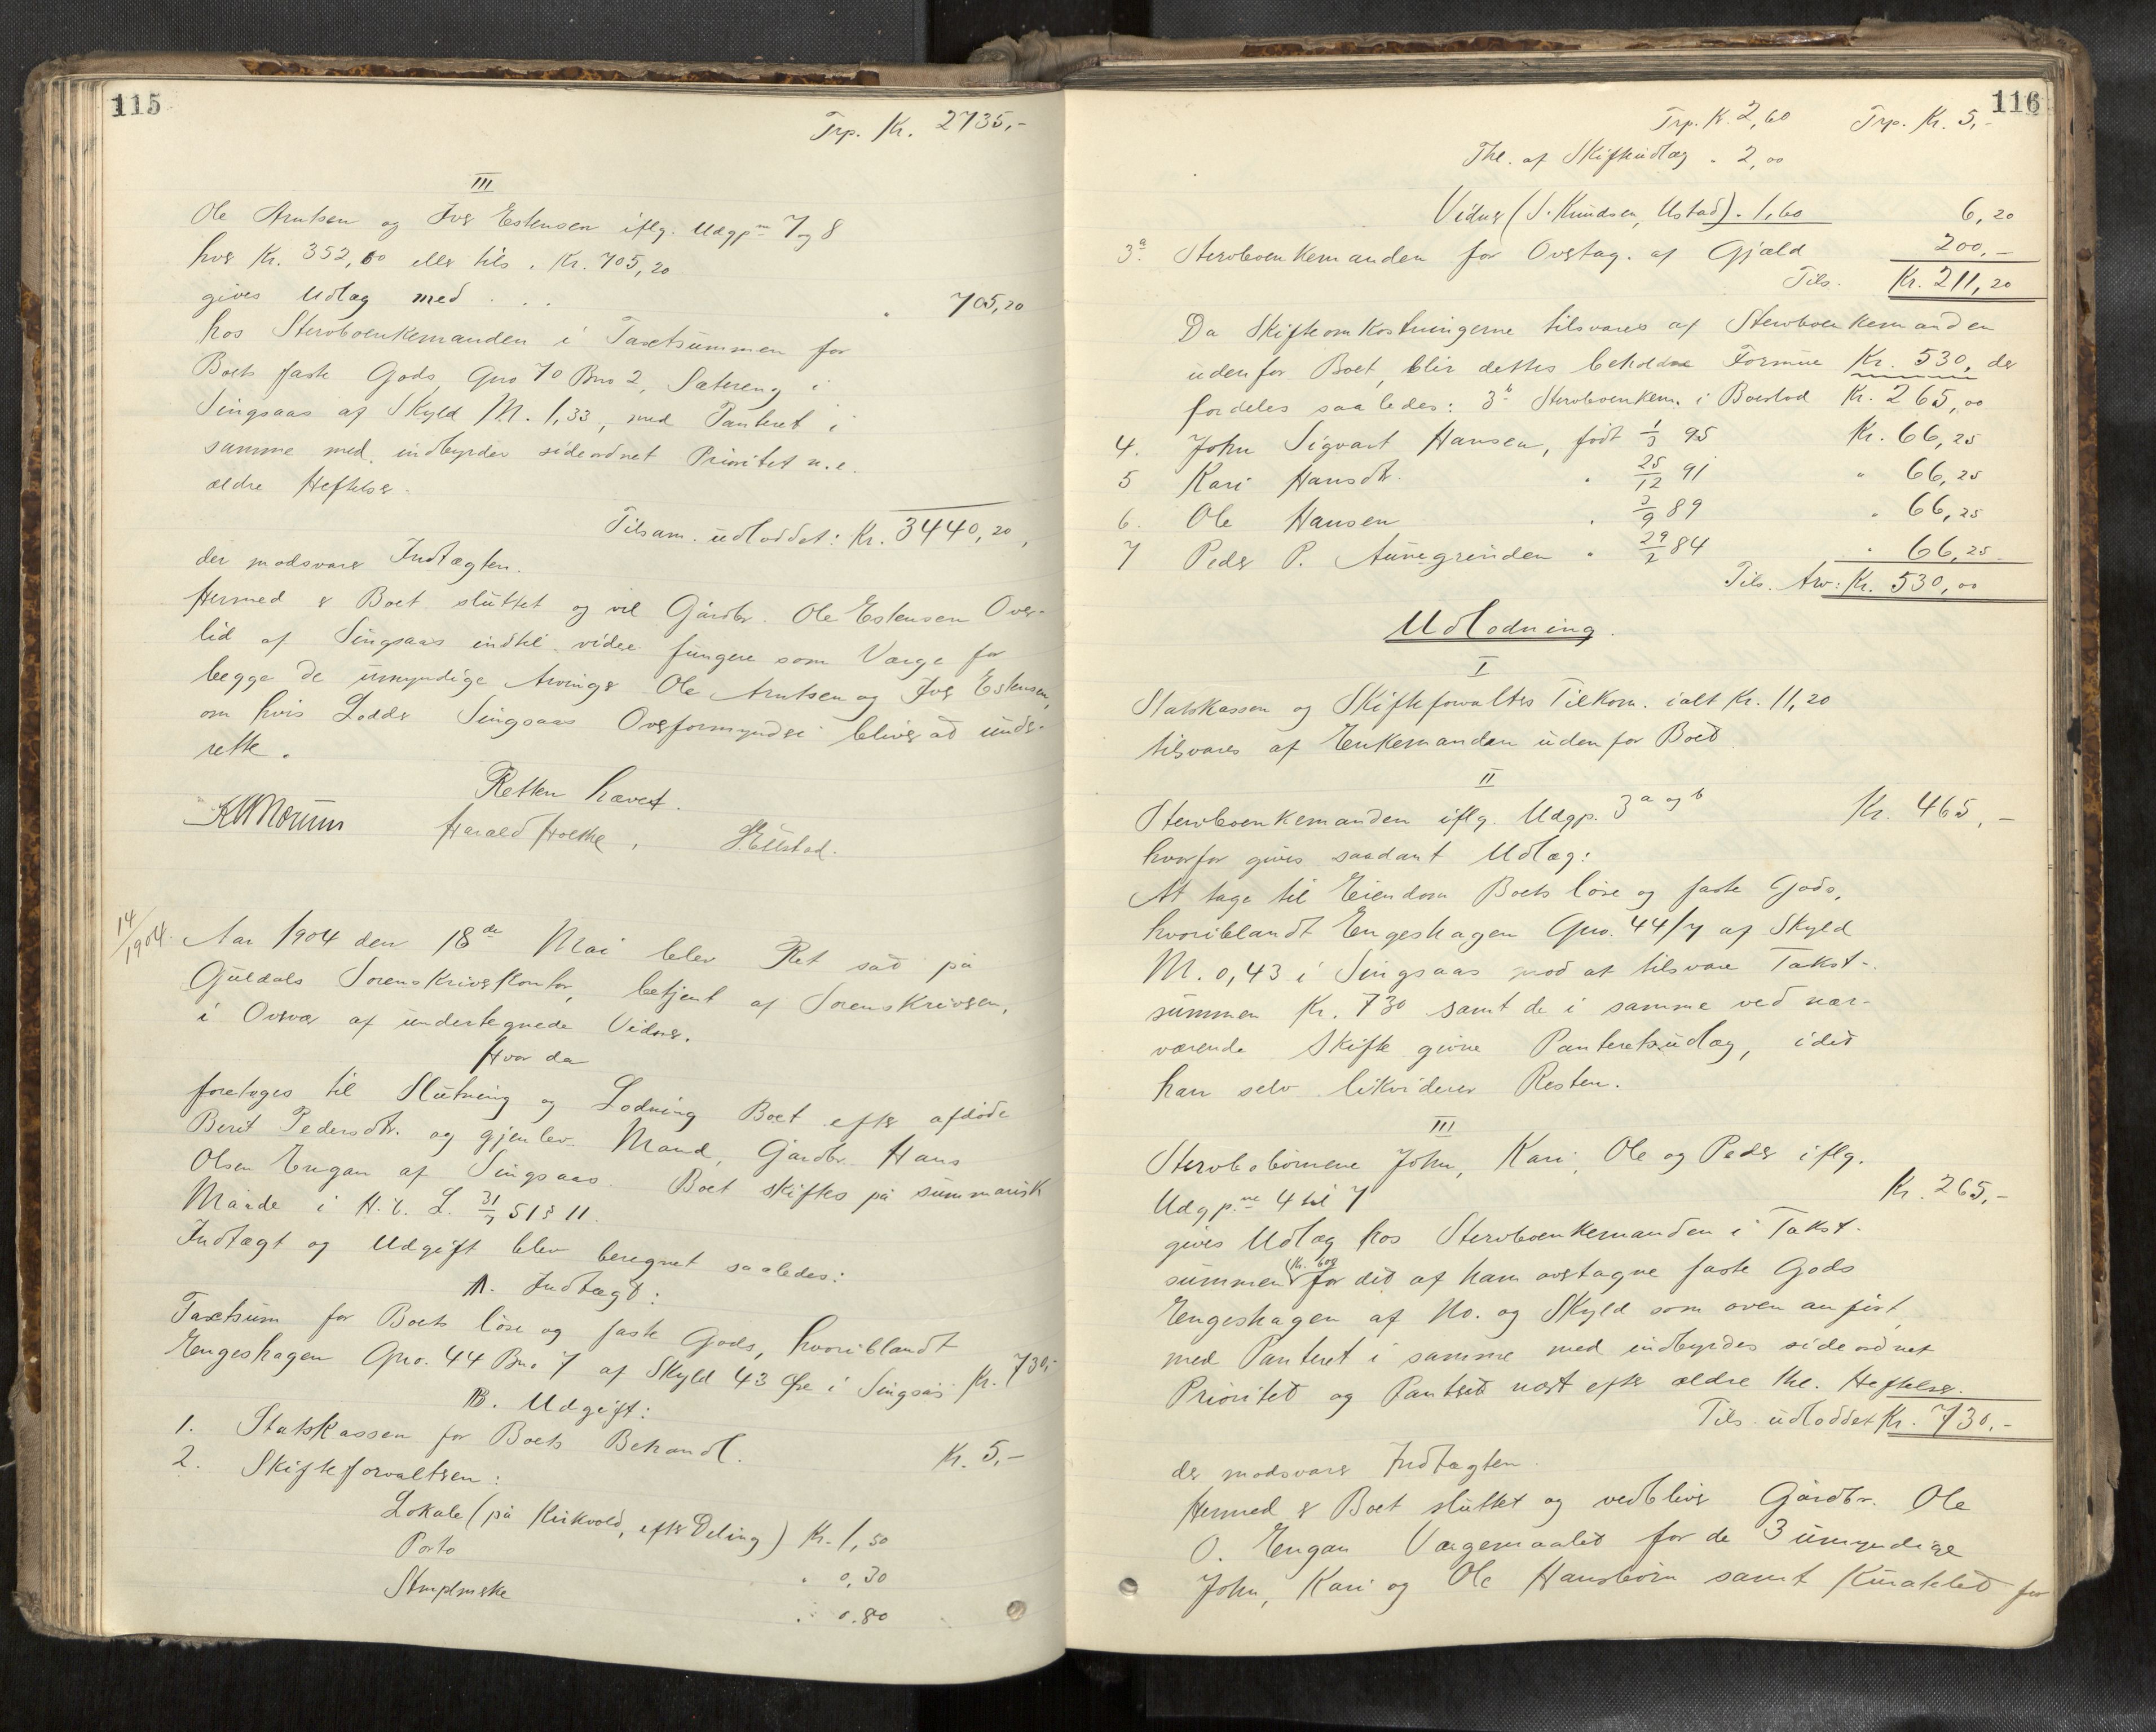 115
Trp. Kr. 2735,-
III
Ole Arntsen og Iver Estensen iflg. Udgp. 7 og 8
hver Kr. 352,60 eller tils. Kr. 705,20
gives Udlæg med . . . " 705,20
hos Stervboenkemanden i Taxtsummen for
Boets faste Gods Gno 70 Bno 2, Sætereng i
Singsaas af Skyld M. 1,33, med Panteret i
samme med indbyrdes sideordnet Prioritet n. e.
ældre Heftelser.
Tilsam. udloddet: Kr. 3440,20,
der modsvarer Indtægten.
Hermed er Boet sluttet og vil Gårdbr. Ole Estensen Over-
lid af Singsaas indtil videre fungere som Værge for
begge de umyndige Arvinger Ole Arntsen og Iver Estensen,
om hvis Lodder Singsaas Overformynderi bliver at under-
rette.
Retten hævet.
Harald Holthe,
14/1904. Aar 1904 den 18de Mai blev Ret sat på
Guldals Sorenskriverkontor, betjent af Sorenskriveren,
i Overvær af undertegnede Vidner.
Hvor da
foretoges til Slutning og Lodning Boet efter afdøde
Berit Pedersdtr. og gjenlev. Mand, Gårdbr. Hans
Olsen Engan af Singsaas. Boet skiftes på summarisk
Maade i H. t. L. 31/7 51 § 11.
Indtægt og Udgift blev beregnet saaledes:
A. Indtægt:
Taxtsum for Boets løse og faste Gods, hvoriblandt
Engeshagen Gno. 44 Bno 7 af Skyld 43 Øre i Singsås Kr. 730,-
B. Udgift:
1. Statskassen for Boets Behandl. Kr. 5,-
2. Skifteforvalteren:
Lokale (på Kirkvold, efter Deling) Kr. 1,50
Porto " 0,30
Stmplmrke " 0.80
116
Trp. K. 2,60 Trp. Kr. 5,-
Thl. af Skifteudlæg " 2,00
Vidner (S. Knudsen, Ustad) " 1,60 6,20
3a. Stervboenkemanden for Overtag. af Gjæld 200,-
Tils. Kr. 211,20
Da Skifteomkostningerne tilsvares af Stervboenkemanden
udenfor Boet, blir dettes beholdne Formue Kr. 530, der
fordeles saaledes: 3b Stervboenkem. i Boeslod Kr. 265,00
4. John Sigvart Hansen, født 1/3 95 Kr. 66,25
5 Kari Hansdtr. " 25/12 91 " 66,25
6. Ole Hansen " 3/9 89 " 66,25
7 Peder P. Aunegrinden " 29/2 84 " 66,25
Tils. Arv: Kr. 530,00
Udlodning.
I
Statskassen og Skifteforvalters Tilkom. ialt Kr. 11,20
tilsvares af Enkemanden udenfor Boet
II
Stervboenkemanden iflg. Udgp. 3 a og b Kr. 465,-
hvorfor gives saadant Udlæg:
At tage til Eiendom Boets løse og faste Gods,
hvoriblandt Engeshagen Gno. 44/7 af Skyld
M. 0,43 i Singsaas mod at tilsvare Takst-
summen Kr. 730 samt de i samme ved nær-
værende Skifte givne Panteretsudlæg, idet
han selv likviderer Resten.
III
Stervbobørnene John, Kari, Ole og Peder iflg.
Udgp.ne 4 til 7 Kr. 265,-
gives Udlæg hos Stervboenkemanden i Takst-
summen (Kr. 600) for det af ham overtagne faste Gods
Engeshagen af No. og Skyld som oven anført
med Panteret i samme med indbyrdes sideordnet
Prioritet og Panteret næst efter ældre thl. Heftelser.
Tils. udloddet Kr. 730.-
der modsvarer Indtægten.
Hermed er Boet sluttet og vedbliver Gårdbr. Ole
O. Engan Værgemaalet for de 3 umyndige
John, Kari og Ole Hansbørn samt Kuratelet for